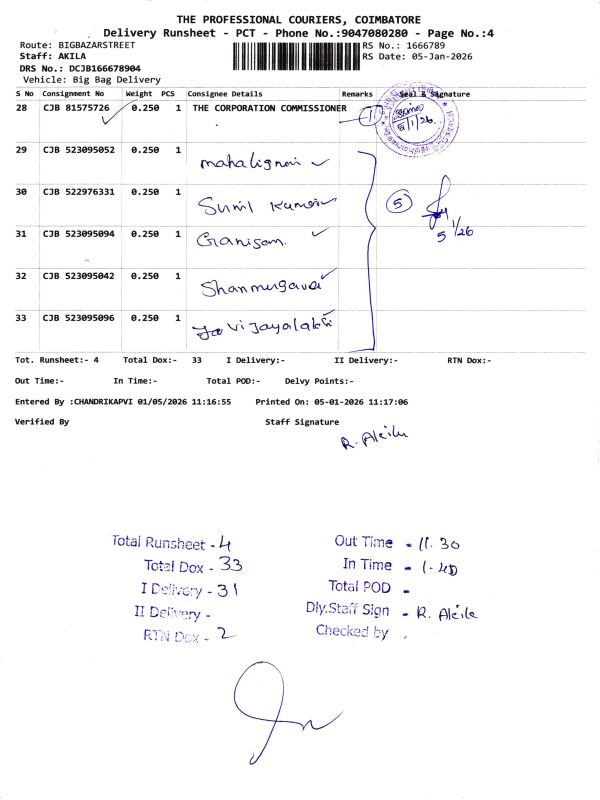 THE PROFESSIONAL COURIERS, COIMBATORE
Delivery Runsheet - PCT - Phone No.:9047080280 - Page No.:4
Route: BIGBAZARSTREET RS No.: 1666789
Staff: AKILA RS Date: 05-Jan-2026
DRS No.: DCJB166678904
Vehicle: Big Bag Delivery
S No Consignment No Weight PCS Consignee Details Remarks Seal & Signature
28 CJB 81575726 0.250 1 THE CORPORATION COMMISSIONER 1
5/1/26
29 CJB 523095052 0.250 1
30 CJB 522976331 0.250 1 Sunil Kumar 5
5/1/26
31 CJB 523095094 0.250 1 Ganison
32 CJB 523095042 0.250 1
33 CJB 523095096 0.250 1 Vijayalakshi
Tot. Runsheet:- 4 Total Dox:- 33 I Delivery:- II Delivery:- RTN Dox:-
Out Time:- In Time:- Total POD:- Delvy Points:-
Entered By :CHANDRIKAPVI 01/05/2026 11:16:55 Printed On: 05-01-2026 11:17:06
Verified By Staff Signature
R. Akila
Total Runsheet - 4 Out Time - 11.30
Total Dox - 33 In Time - 1-40
I Delivery - 31 Total POD -
II Delivery - Dly.Staff Sign - R. Akila
RTN Dox - 2 Checked by